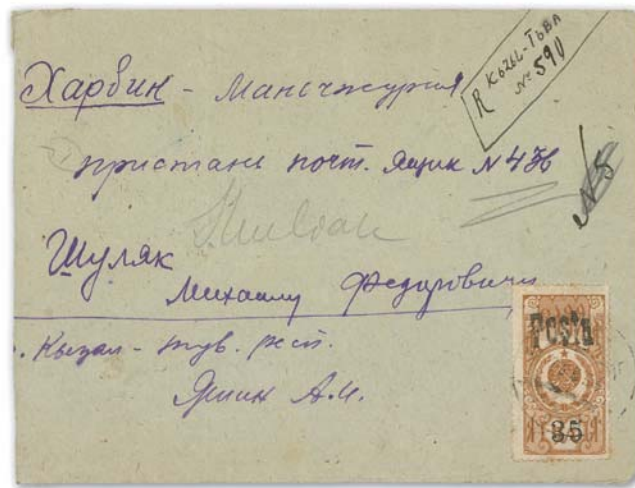 R Kьzьl-Tьва
№ 590
Харбин - Маньчжурия
пристань почт. ящик N 436
N 5
Шуляк
Михаилу Федоровичу
Кызыл - тув. респ.
А.И.
Posta
35